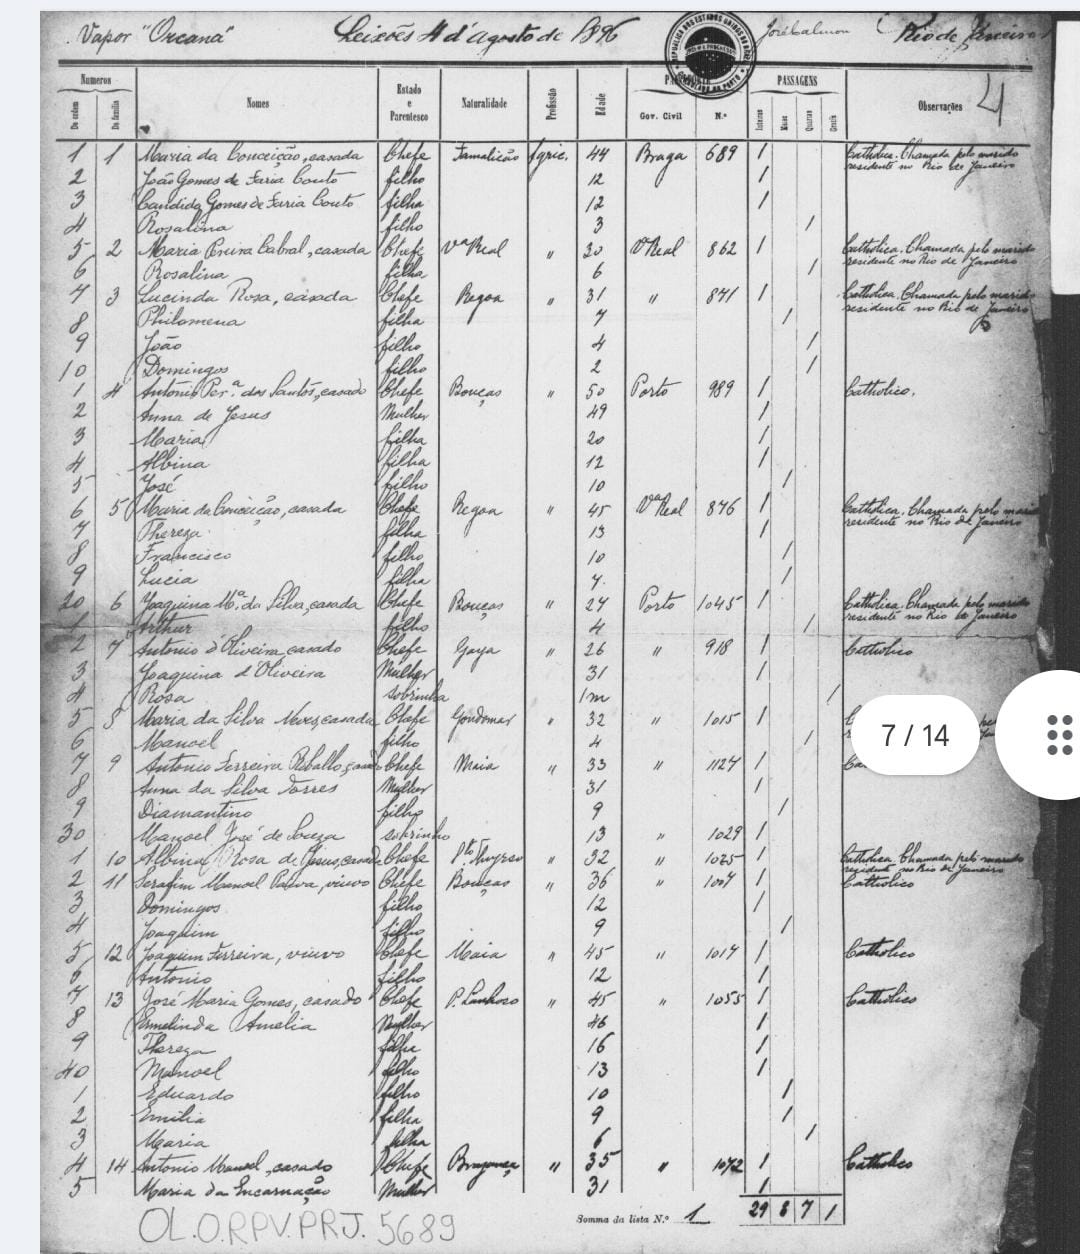 Vapor "Orcana" Leixões 4 d'Agosto de 1896 José Calmon Rio de Janeiro
4
Numeros PASSAGENS
De ordem De familia Nomes Estado e Parentesco Naturalidade Profissão Edade Gov. Civil N.º Inteiras Meias Quartas Gratis Observações
1 1 Maria da Conceição, casada Chefe Famalicão Agric. 44 Braga 689 1 Catholica. Chamada pelo marido
residente no Rio de Janeiro
2 João Gomes de Faria Couto filho 12 1
3 Candida Gomes de Faria Couto filha 12 1
4 Rosalina filho 3 1
5 2 Maria Cabral, casada Chefe Vª Real " 30 Vª Real 862 1 Catholica. Chamada pelo marido
residente no Rio de Janeiro
6 Rosalina filha 6 1
7 3 Lucinda Rosa, casada Chefe Regoa " 31 " 841 1 Catholica. Chamada pelo marido
residente no Rio de Janeiro
8 Philomena filha 7 1
9 João filho 4 1
10 Domingos filho 2 1
1 4 Antonio Per.ª dos Santos, casado Chefe Bouças " 50 Porto 989 1 Catholico.
2 Anna de Jesus Mulher 49 1
3 Maria filha 20 1
4 Albina filha 12 1
5 José filho 10 1
6 5 Maria da Conceição, casada Chefe Regoa " 45 Vª Real 876 1 Catholica. Chamada pelo marido
residente no Rio de Janeiro
7 Thereza filha 13 1
8 Francisco filho 10 1
9 Lucia filha 7. 1
20 6 Joaquina M.ª da Silva, casada Chefe Bouças " 27 Porto 1045 1 Catholica. Chamada pelo marido
residente no Rio de Janeiro
1 Arthur filho 4 1
2 7 Antonio d'Oliveira, casado Chefe Gaya " 26 " 918 1 Catholico
3 Joaquina d'Oliveira Mulher 31 1
4 Rosa sobrinha 1m 1
5 8 Maria da Silva Neves, casada Chefe Gondomar " 32 " 1015 1
7 / 14
6 Manoel filho 4 1
7 9 Antonio Ferreira Rebello, casado Chefe Maia " 33 " 1127 1 Ca
8 Anna da Silva Torres Mulher 31 1
9 Diamantino filho 9 1
30 Manoel José de Souza sobrinho 13 " 1029 1
1 10 Albina Rosa de Jesus, casada Chefe Sto. Thyrso " 32 " 1025 1 Catholica. Chamada pelo marido
residente no Rio de Janeiro
2 11 Serafim Manoel Paiva, viuvo Chefe Bouças " 36 " 1007 1 Catholico
3 Domingos filho 12 1
4 Joaquim filho 9 1
5 12 Joaquim Ferreira, viuvo Chefe Maia " 45 " 1017 1 Catholico
6 Antonio filho 12 1
7 13 José Maria Gomes, casado Chefe P. Lanhoso " 45 " 1055 1 Catholico
8 Ermelinda Amelia Mulher 46 1
9 Thereza filha 16 1
40 Manoel filho 13 1
1 Eduardo filho 10 1
2 Emilia filha 9 1
3 Maria filha 6 1
4 14 Antonio Manoel, casado Chefe Bragança " 35 " 1072 1 Catholico
5 Maria da Encarnação Mulher 31 1
Somma da lista N.º 1 29 8 7 1
OL.O.RPV.PRJ. 5689